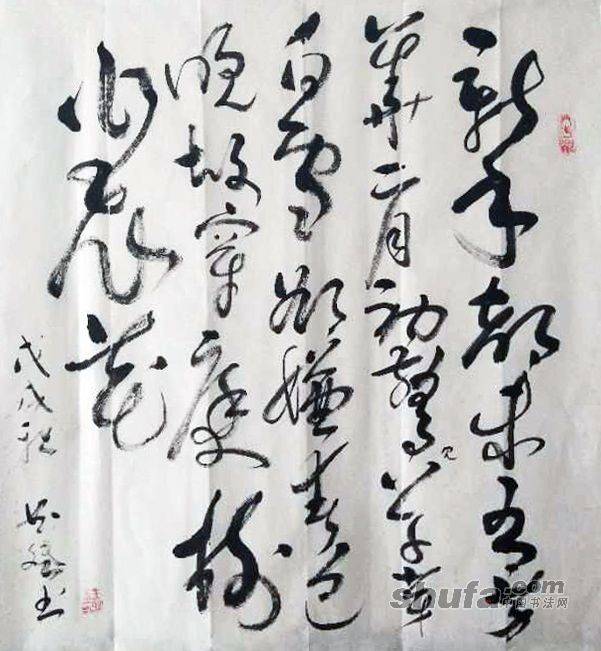 新年都未有芳
華二月初驚見草芽
白雪却嫌春色
晚故穿庭樹
作飛花
戊戌秋
書
shufa.com
中国书法网